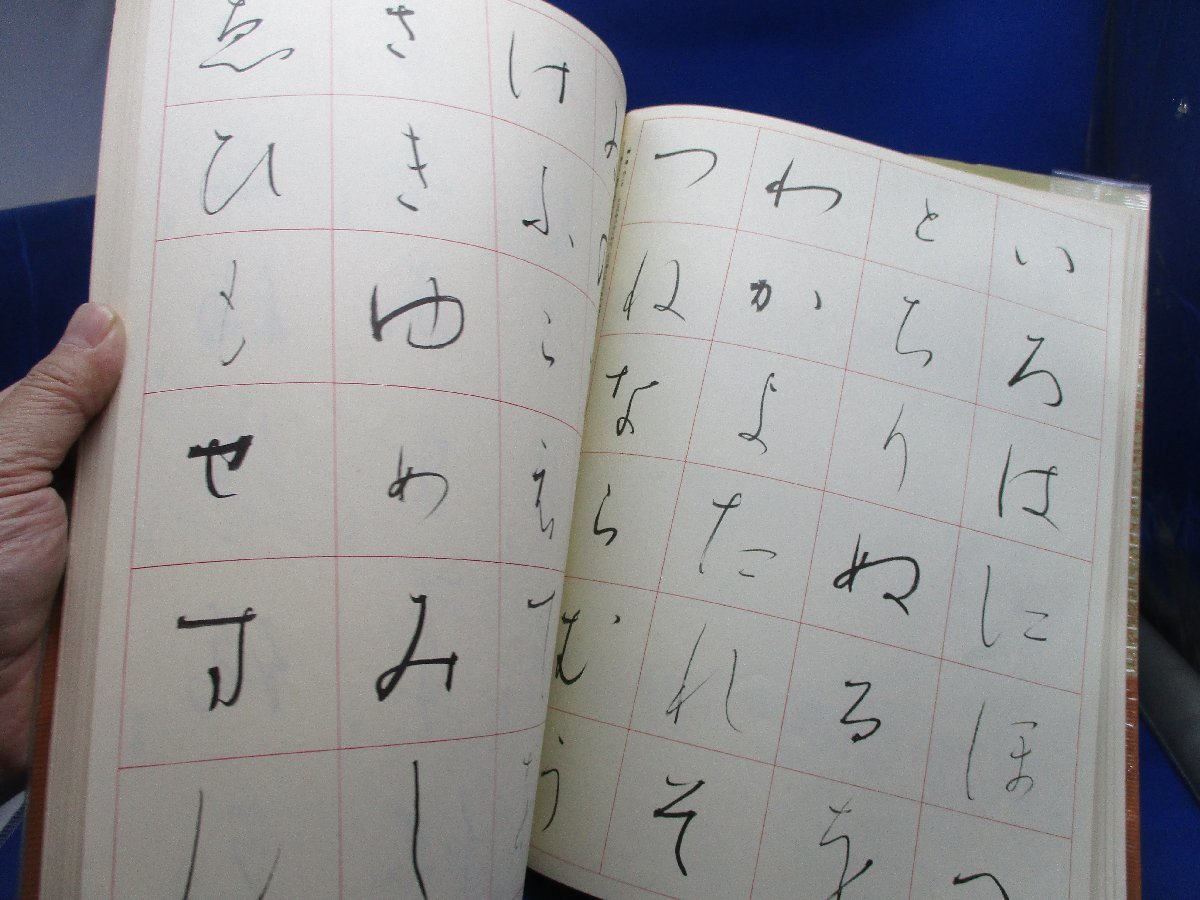 いろはにほへ
とちりぬるを
わかよたれそ
つねならむう
けふこえて
さきゆめみし
ゑひもせすん